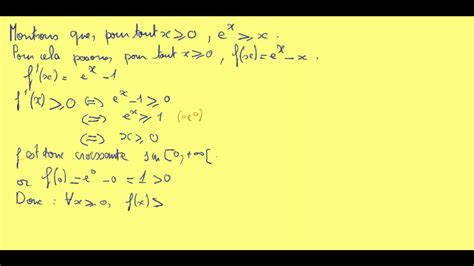 Montrons que, pour tout x ⩾ 0, eˣ ⩾ x.
Pour cela posons, pour tout x ⩾ 0, f(x) = eˣ - x.
f'(x) = eˣ - 1
f'(x) ⩾ 0 (=) eˣ - 1 ⩾ 0
(=) eˣ ⩾ 1 (= e⁰)
(=) x ⩾ 0
f est donc croissante sur [0, +∞[.
or f(0) = e⁰ - 0 = 1 > 0
Donc : ∀x ⩾ 0, f(x) ⩾